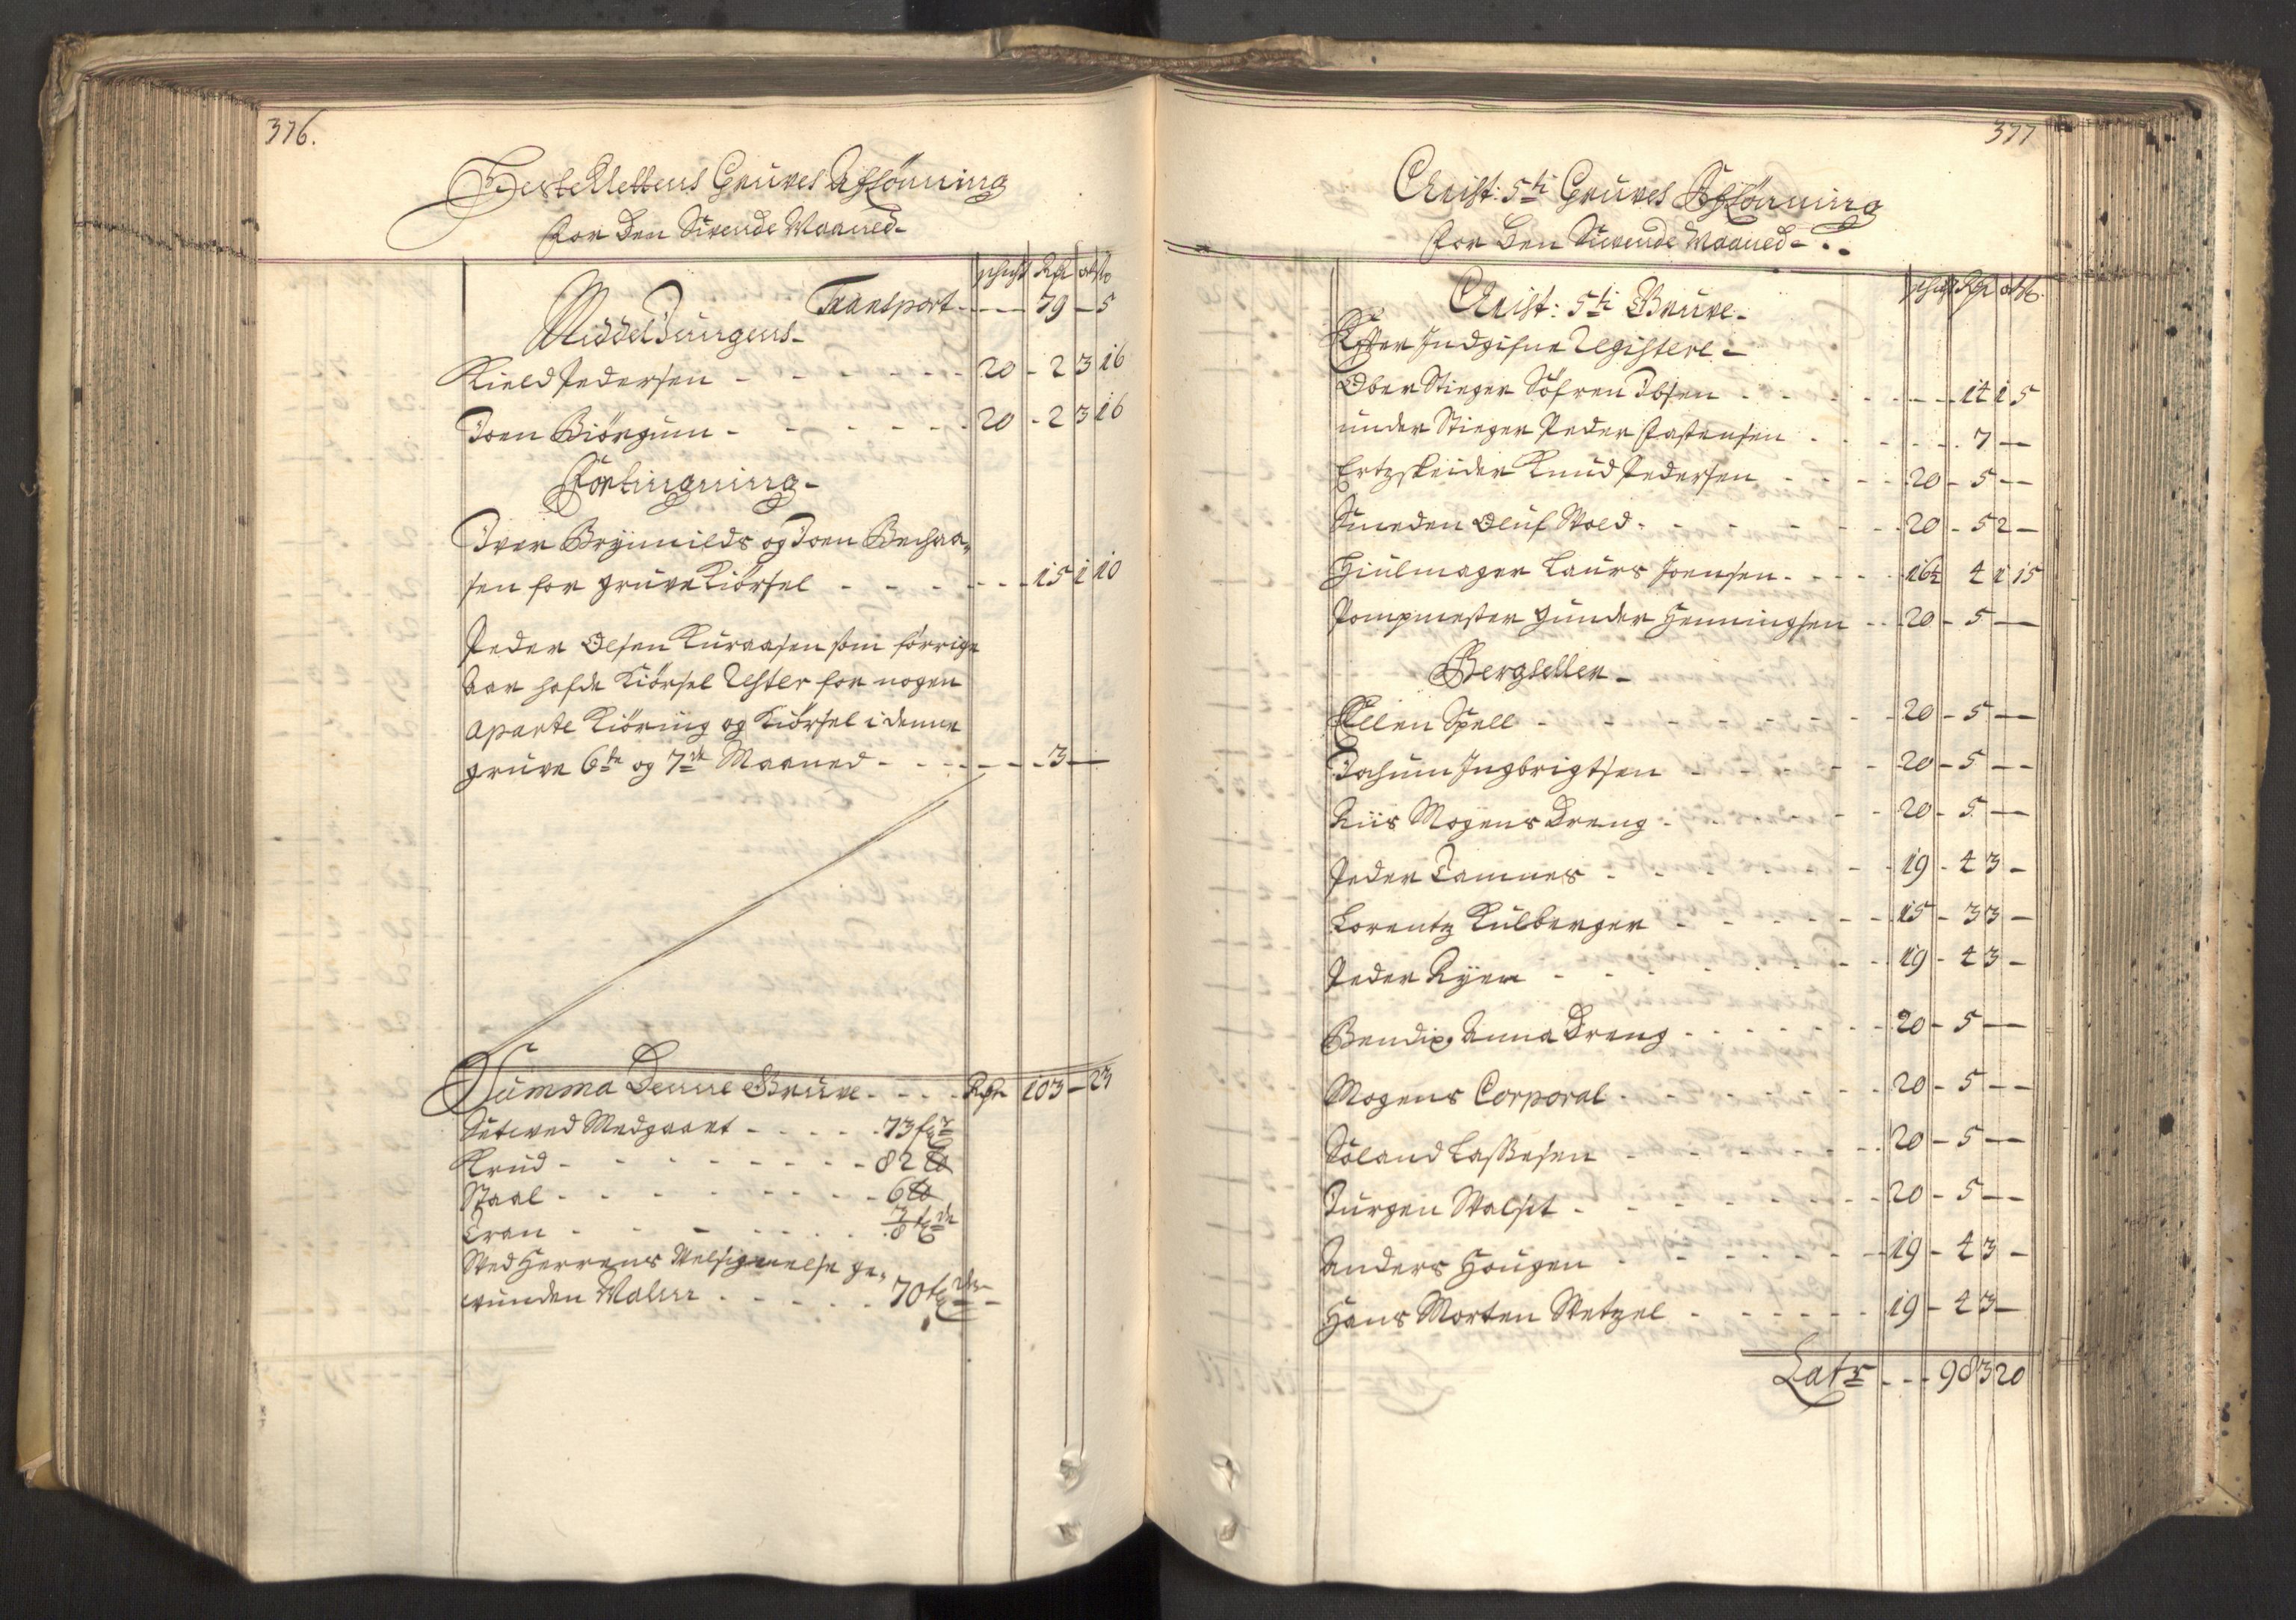 376.
Hestklettens Gruves Afflönning
for den Siuende Maaned
schicht Rdr ort ß
Transport - - - 79 - 5
Middel Jungens
Kield Pedersen - - - 20 - 2 3 16
Joen Biörgum - - - 20 - 2 3 16
Fortingning
Iver Brynnilds og Joen Bechaa,
sen for gruve Kiörsel - - - 15 1 10
Peder Olsen Kuraasen som forrige
Aar hafde Kiörsel Ester for nogen
aparte Kiöring og Kiörsel i denne
gruve 6te og 7de Maaned - - - 3 —
Summa Denne Gruve - - - Rdr 103 - 23
Setwed Medgaaet - - - 73 fr
Krud - - - 82 ℔
Staal - - - 6 ℔
Tran - - - 7/8 tde
Med Herrens Velsignelse ge,
wunden Malm - - - 70 tdr
377
Christ: 5ti Gruves Afflönning
for den Siuende Maaned
schicht Rdr ort ß
Christ: 5ti Gruve
Efter Indgifne Registere
Ober Stieger Söfren Ibsen - - - 14 1 5
under Stieger Peder Pastensen - - - 7 —
Ertzskeider Knud Pedersen - - - 20 - 5 — —
Smeden Oluf Wold - - - 20 - 5 2 —
Hiulmager Laurs Joensen - - - 16½ 4 1 15
Pompmester Gunder Henningsen - - 20 - 5 —
Bergseller
Ellen Spell - - - 20 - 5 —
Jochum Ingbrigtsen - - - 20 - 5 — —
Niis Mogens Dreng - - - 20 - 5 —
Peder Tamnes - - - 19 - 4 3 —
Lorentz Kulberger - - - 15 - 3 3 —
Peder Ryen - - - 19 - 4 3 —
Bendix Anna Dreng - - - 20 - 5 —
Mogens Corporal - - - 20 - 5 — —
Söland Lassesen - - - 20 - 5 — —
Jürgen Walset - - - 20 - 5 — —
Anders Hougen - - - 19 - 4 3 —
Hans Morten Wetzel - - - 19 - 4 3 —
Latr - - - 98 3 20